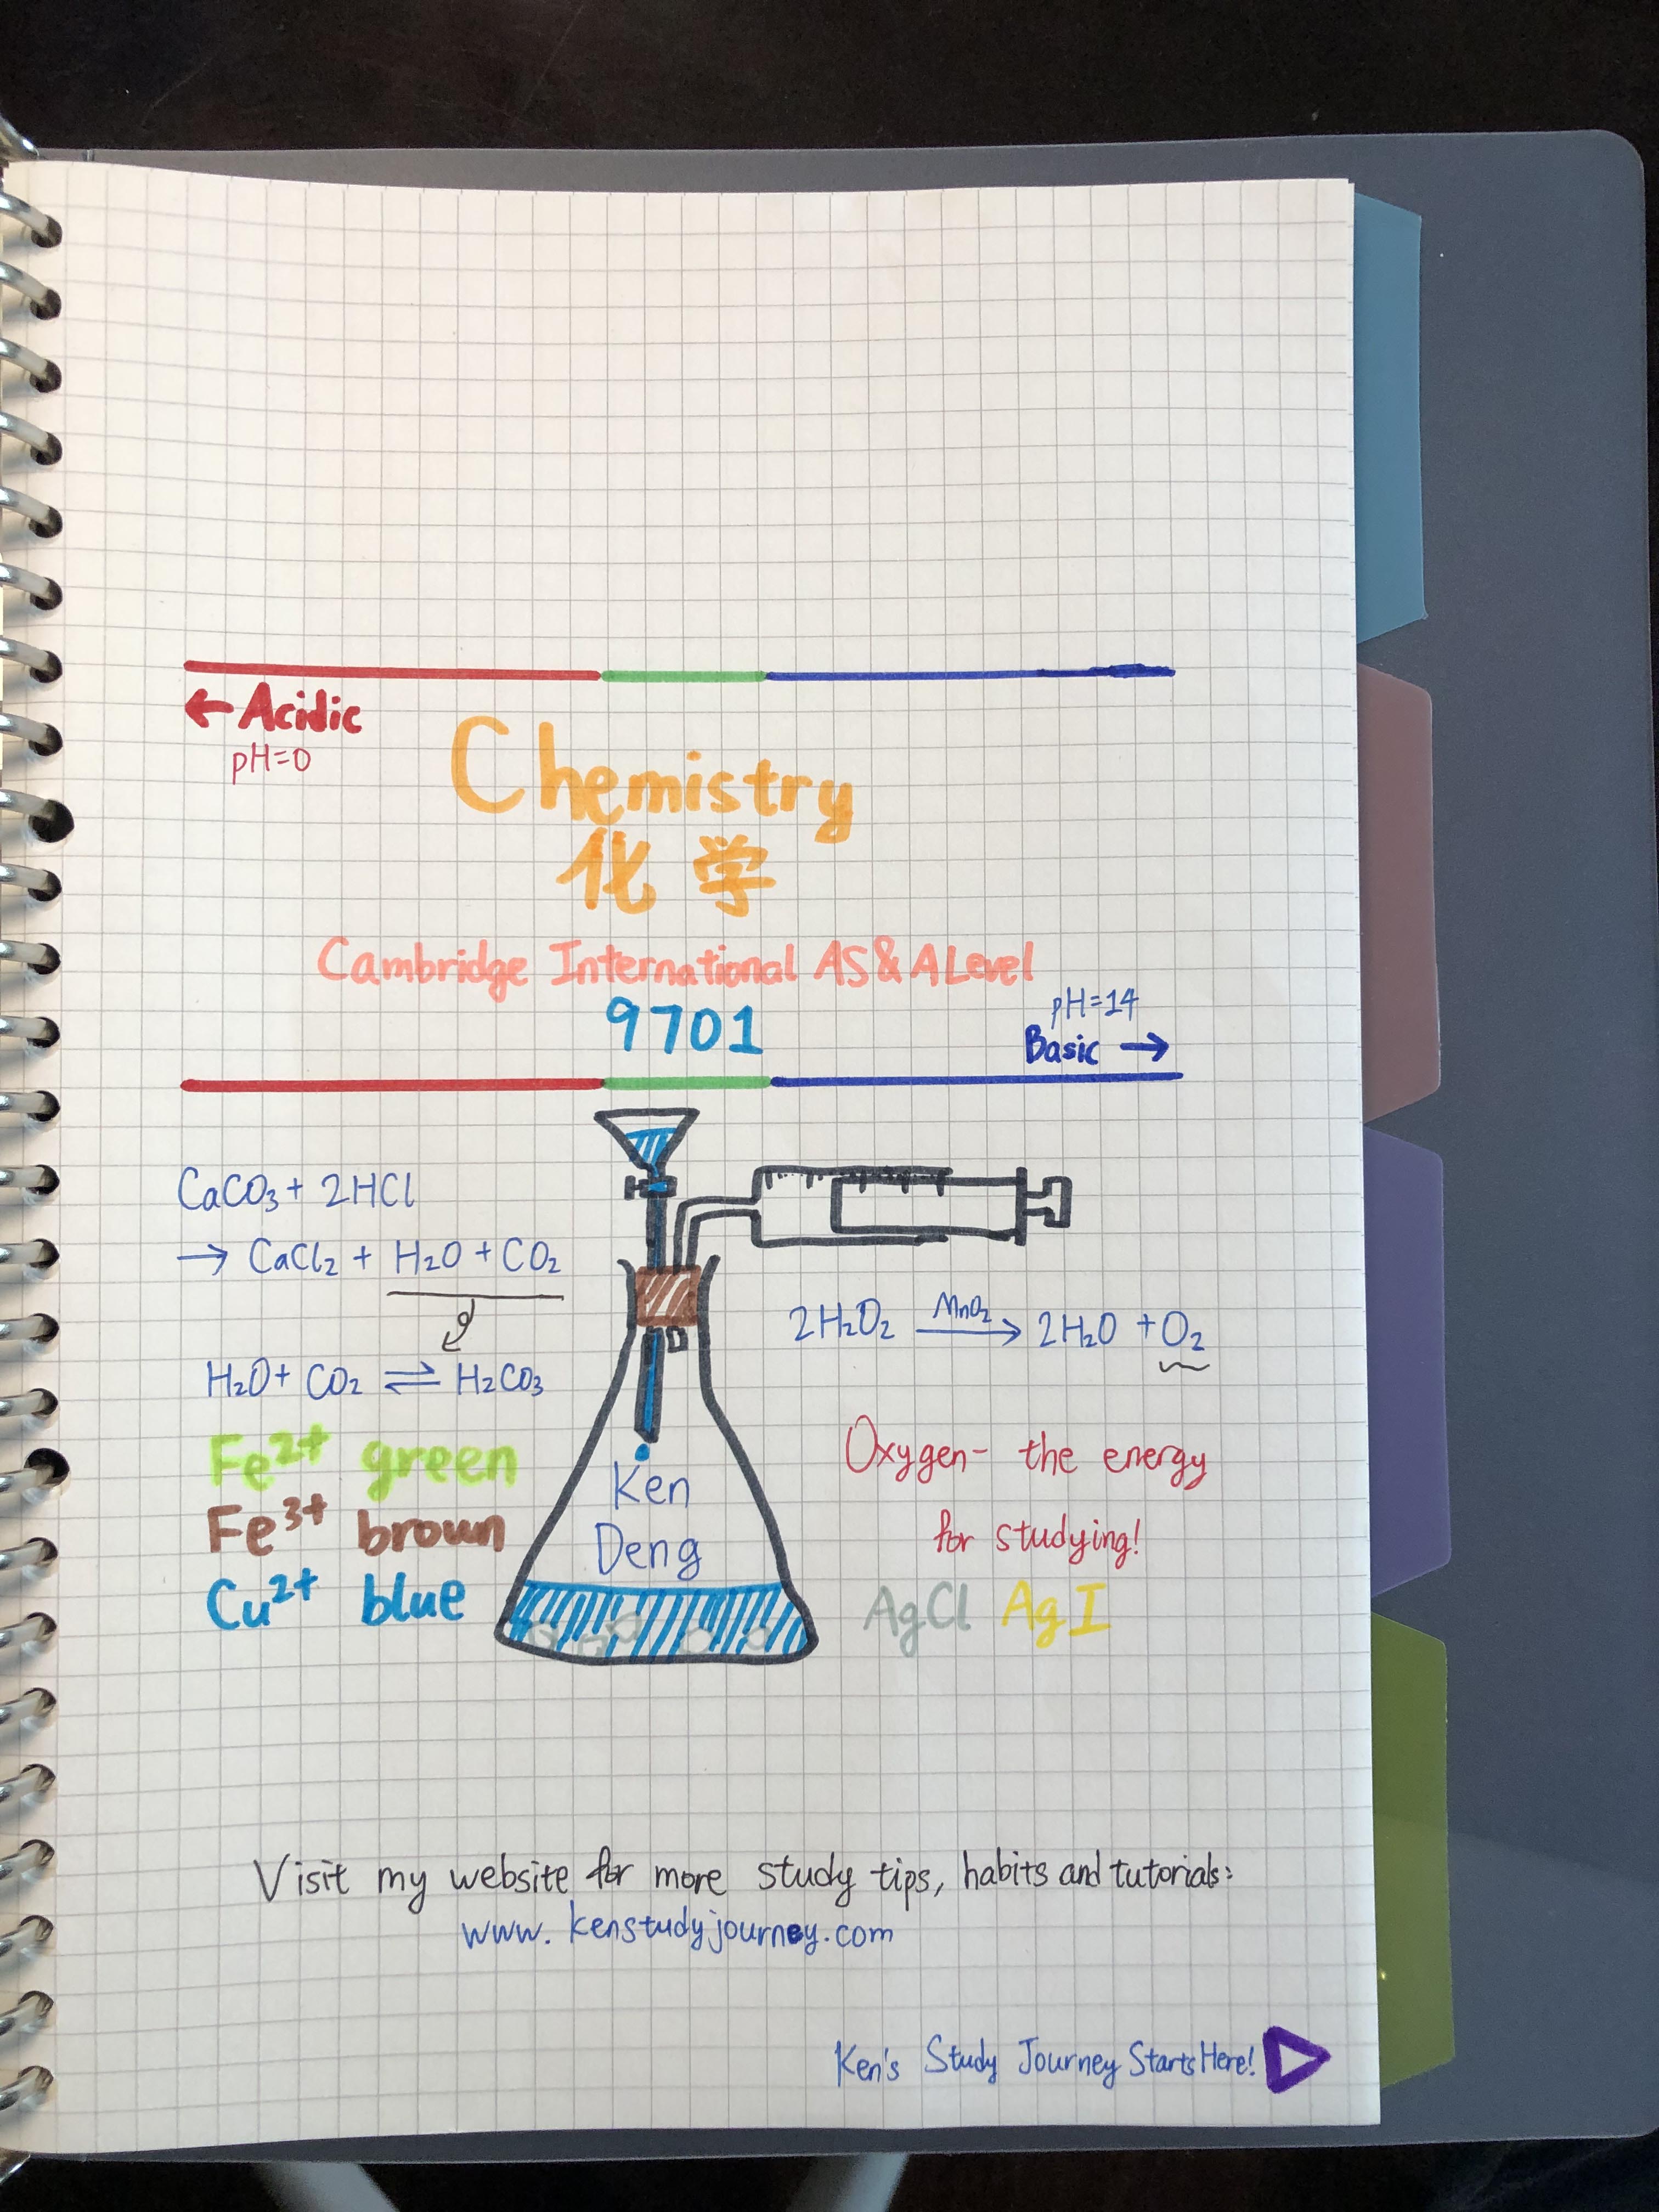 ← Acidic
pH=0
Chemistry
化学
Cambridge International AS & A Level
9701
pH=14
Basic →
CaCO₃ + 2HCl
→ CaCl₂ + H₂O + CO₂
H₂O + CO₂ ⇌ H₂CO₃
2H₂O₂ MnO₂→ 2H₂O + O₂
Fe²⁺ green
Fe³⁺ brown
Cu²⁺ blue
Ken
Deng
Oxygen- the energy
for studying!
AgCl AgI
Visit my website for more study tips, habits and tutorials:
www.kenstudyjourney.com
Ken's Study Journey Starts Here!